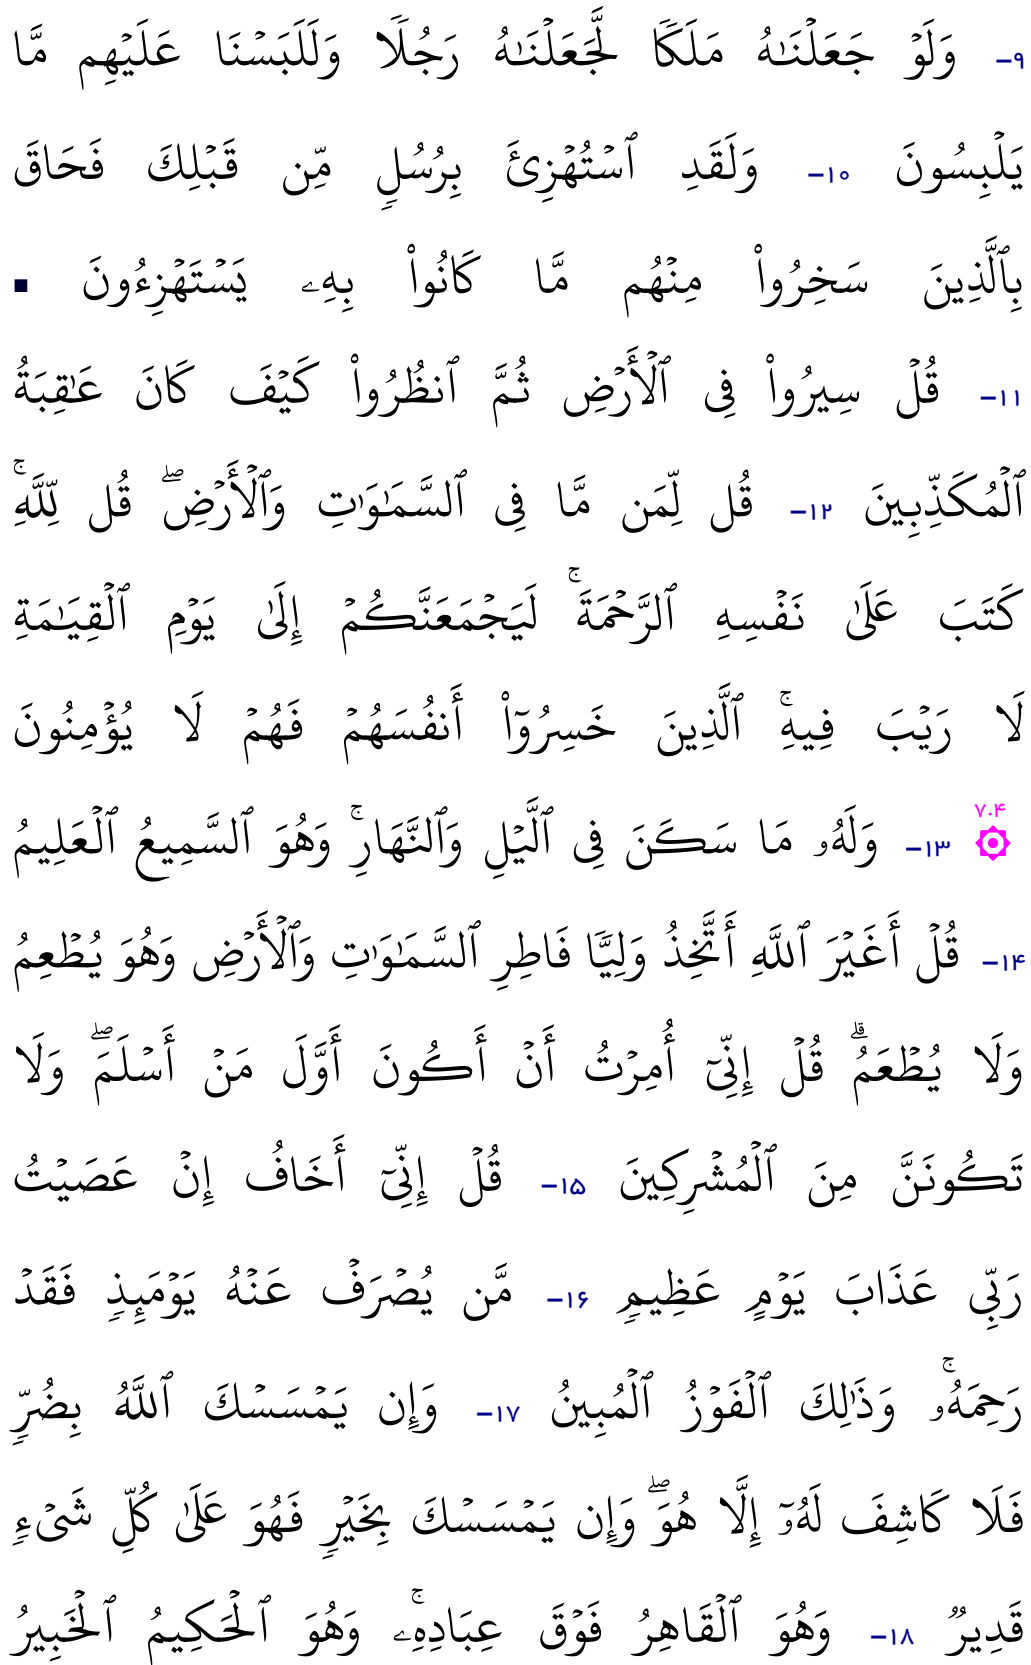 ۹- وَلَوۡ جَعَلۡنَٰهُ مَلَكٗا لَّجَعَلۡنَٰهُ رَجُلٗا وَلَلَبَسۡنَا عَلَيۡهِم مَّا
يَلۡبِسُونَ ۱۰- وَلَقَدِ ٱسۡتُهۡزِئَ بِرُسُلٖ مِّن قَبۡلِكَ فَحَاقَ
بِٱلَّذِينَ سَخِرُواْ مِنۡهُم مَّا كَانُواْ بِهِۦ يَسۡتَهۡزِءُونَ ■
۱۱- قُلۡ سِيرُواْ فِي ٱلۡأَرۡضِ ثُمَّ ٱنظُرُواْ كَيۡفَ كَانَ عَٰقِبَةُ
ٱلۡمُكَذِّبِينَ ۱۲- قُل لِّمَن مَّا فِي ٱلسَّمَٰوَٰتِ وَٱلۡأَرۡضِۖ قُل لِّلَّهِۚ
كَتَبَ عَلَىٰ نَفۡسِهِ ٱلرَّحۡمَةَۚ لَيَجۡمَعَنَّكُمۡ إِلَىٰ يَوۡمِ ٱلۡقِيَٰمَةِ
لَا رَيۡبَ فِيهِۚ ٱلَّذِينَ خَسِرُوٓاْ أَنفُسَهُمۡ فَهُمۡ لَا يُؤۡمِنُونَ
۷.۴ ۞ ۱۳- وَلَهُۥ مَا سَكَنَ فِي ٱلَّيۡلِ وَٱلنَّهَارِۚ وَهُوَ ٱلسَّمِيعُ ٱلۡعَلِيمُ
۱۴- قُلۡ أَغَيۡرَ ٱللَّهِ أَتَّخِذُ وَلِيّٗا فَاطِرِ ٱلسَّمَٰوَٰتِ وَٱلۡأَرۡضِ وَهُوَ يُطۡعِمُ
وَلَا يُطۡعَمُۗ قُلۡ إِنِّيٓ أُمِرۡتُ أَنۡ أَكُونَ أَوَّلَ مَنۡ أَسۡلَمَۖ وَلَا
تَكُونَنَّ مِنَ ٱلۡمُشۡرِكِينَ ۱۵- قُلۡ إِنِّيٓ أَخَافُ إِنۡ عَصَيۡتُ
رَبِّي عَذَابَ يَوۡمٍ عَظِيمٖ ۱۶- مَّن يُصۡرَفۡ عَنۡهُ يَوۡمَئِذٖ فَقَدۡ
رَحِمَهُۥۚ وَذَٰلِكَ ٱلۡفَوۡزُ ٱلۡمُبِينُ ۱۷- وَإِن يَمۡسَسۡكَ ٱللَّهُ بِضُرّٖ
فَلَا كَاشِفَ لَهُۥٓ إِلَّا هُوَۖ وَإِن يَمۡسَسۡكَ بِخَيۡرٖ فَهُوَ عَلَىٰ كُلِّ شَيۡءٖ
قَدِيرٞ ۱۸- وَهُوَ ٱلۡقَاهِرُ فَوۡقَ عِبَادِهِۦۚ وَهُوَ ٱلۡحَكِيمُ ٱلۡخَبِيرُ